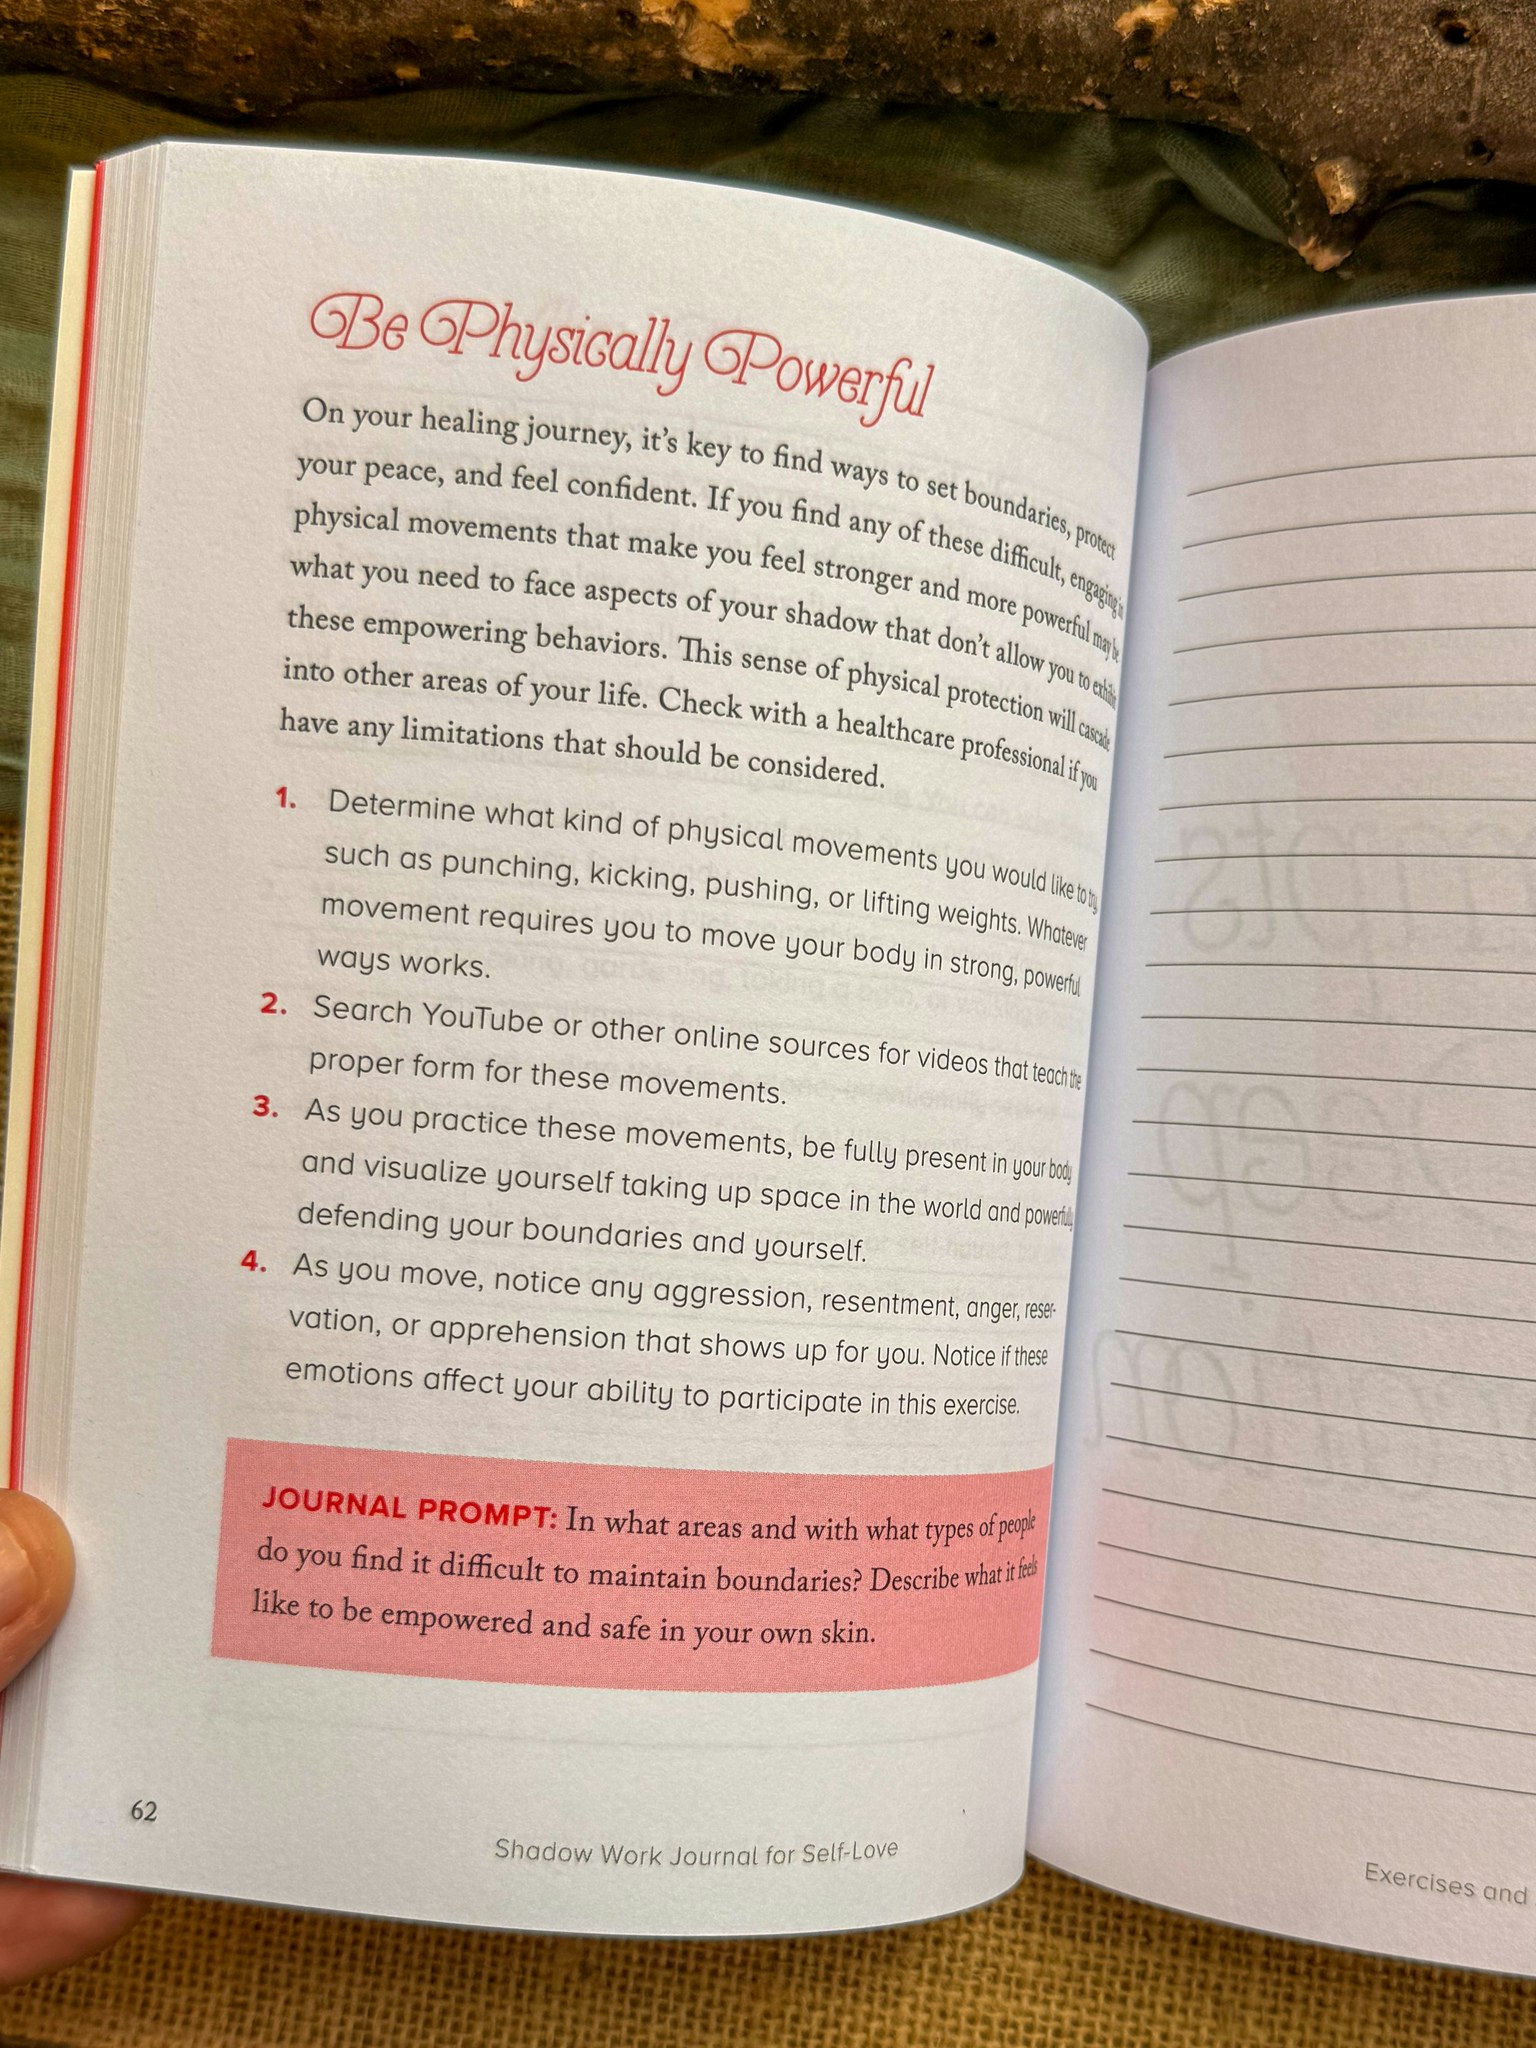 Be Physically Powerful
On your healing journey, it's key to find ways to set boundaries, protect
your peace, and feel confident. If you find any of these difficult, engaging in
physical movements that make you feel stronger and more powerful may be
what you need to face aspects of your shadow that don't allow you to exhibit
these empowering behaviors. This sense of physical protection will cascade
into other areas of your life. Check with a healthcare professional if you
have any limitations that should be considered.
1. Determine what kind of physical movements you would like to try,
such as punching, kicking, pushing, or lifting weights. Whatever
movement requires you to move your body in strong, powerful
ways works.
2. Search YouTube or other online sources for videos that teach the
proper form for these movements.
3. As you practice these movements, be fully present in your body
and visualize yourself taking up space in the world and powerfully
defending your boundaries and yourself.
4. As you move, notice any aggression, resentment, anger, reser-
vation, or apprehension that shows up for you. Notice if these
emotions affect your ability to participate in this exercise.
JOURNAL PROMPT: In what areas and with what types of people
do you find it difficult to maintain boundaries? Describe what it feels
like to be empowered and safe in your own skin.
62
Shadow Work Journal for Self-Love
Exercises and